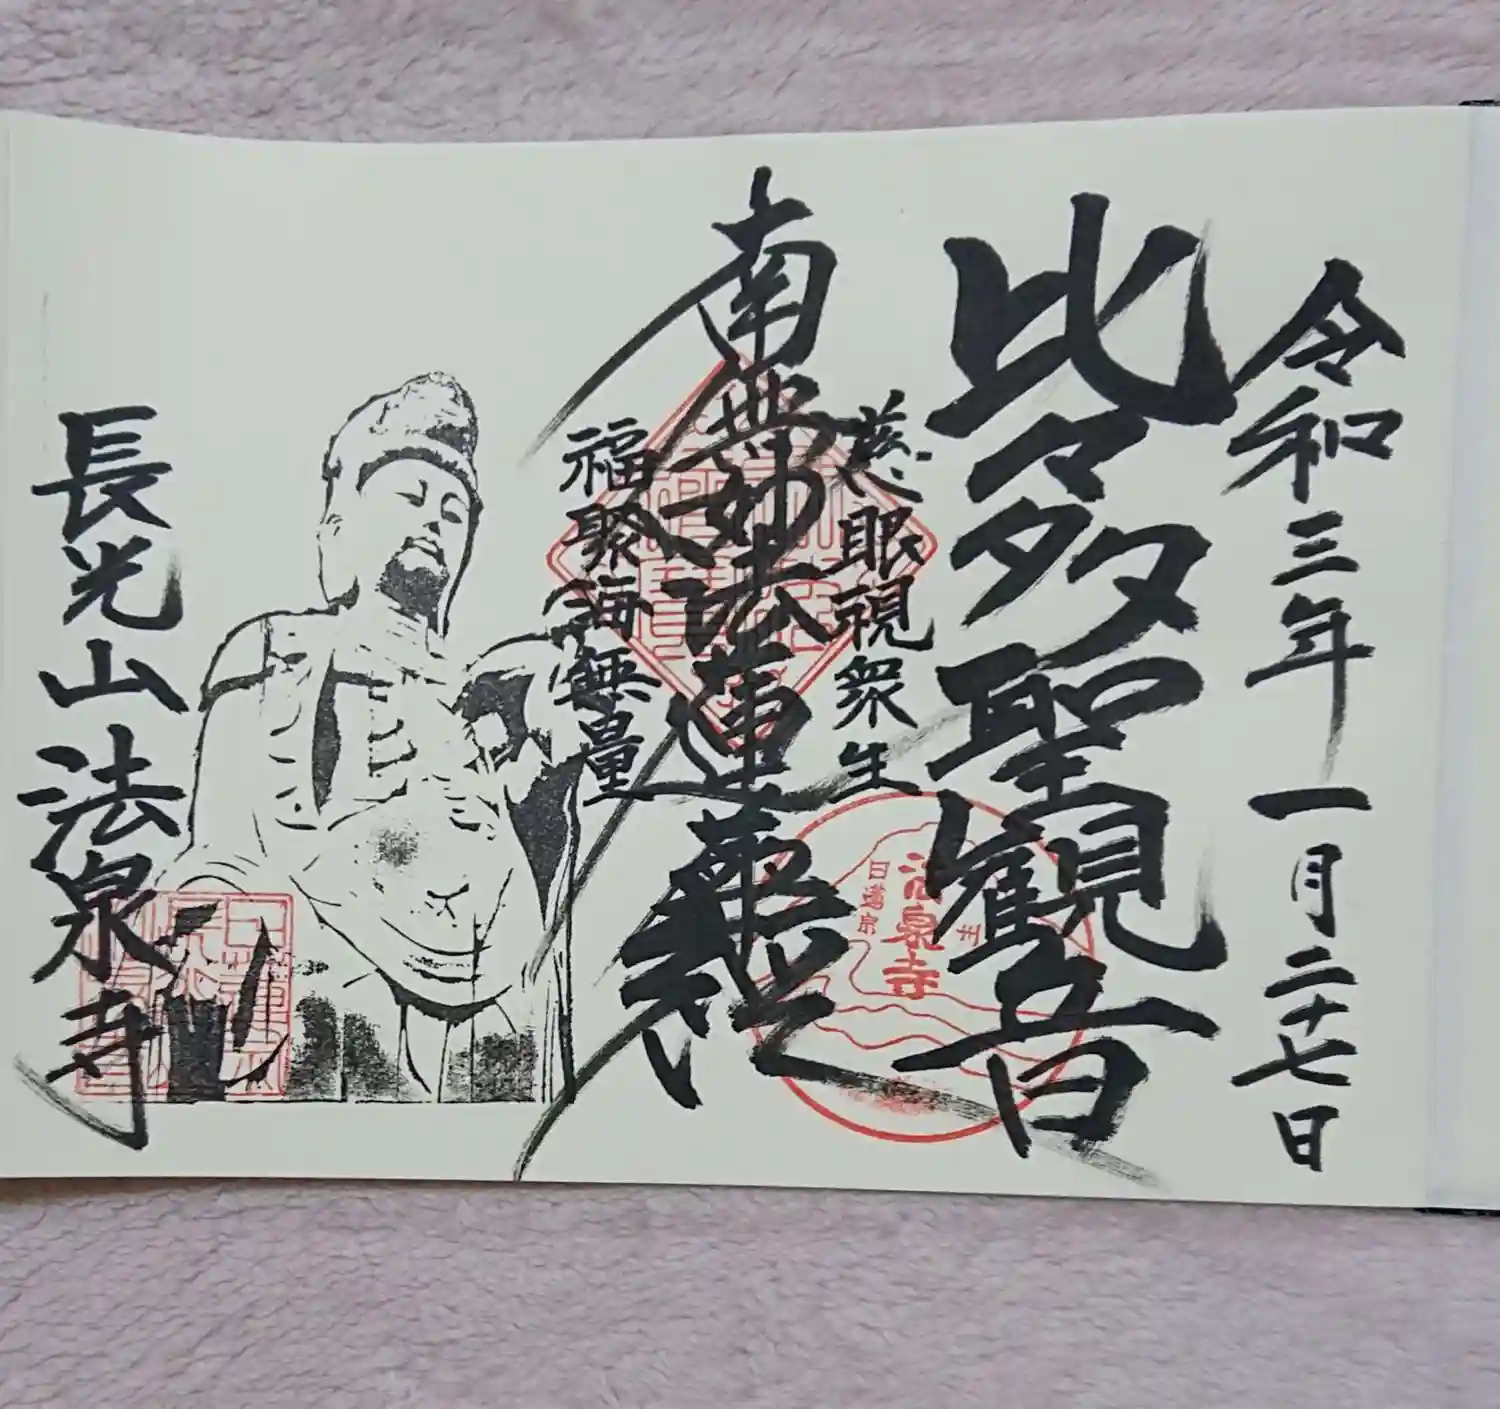 令和三年一月二十七日
比々多聖観音
慈眼視衆生
南無妙法蓮華経
福聚海無量
長光山法泉寺
法泉寺
日蓮宗
州